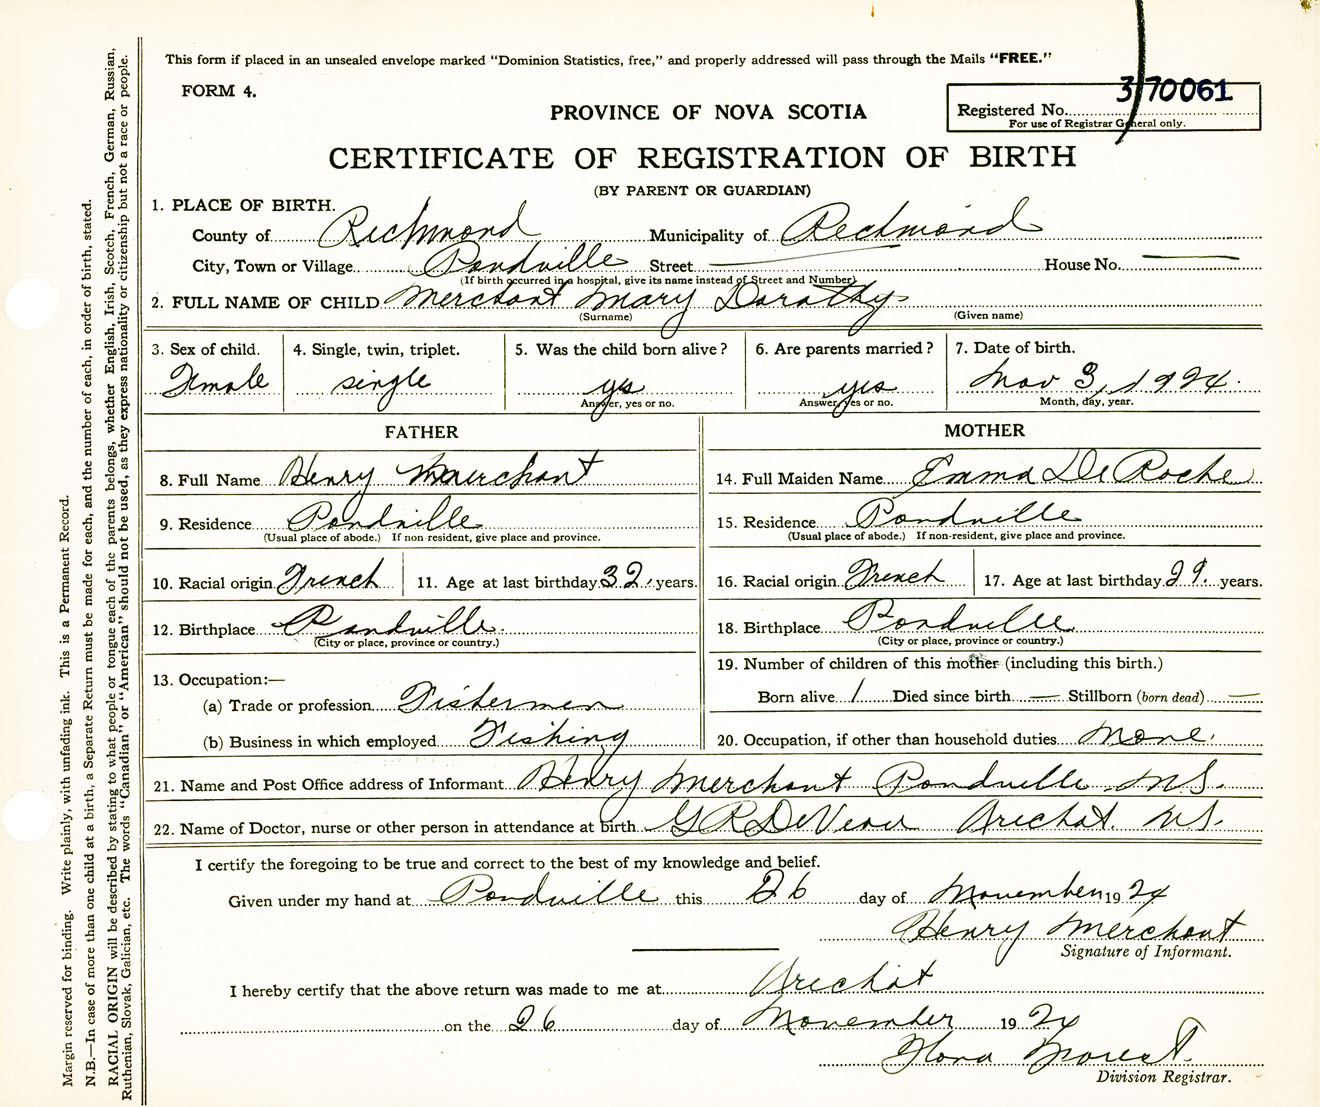 This form if placed in an unsealed envelope marked "Dominion Statistics, free," and properly addressed will pass through the Mails "FREE."
FORM 4.
PROVINCE OF NOVA SCOTIA
Registered No. 370061
For use of Registrar General only.
CERTIFICATE OF REGISTRATION OF BIRTH
(BY PARENT OR GUARDIAN)
1. PLACE OF BIRTH.
County of Richmond Municipality of Richmond
City, Town or Village Pondville Street — House No. —
(If birth occurred in a hospital, give its name instead of Street and Number)
2. FULL NAME OF CHILD Merchant Mary Dorothy
(Surname) (Given name)
3. Sex of child. 4. Single, twin, triplet. 5. Was the child born alive? 6. Are parents married? 7. Date of birth.
Female single yes yes Nov 3, 1924.
Answer, yes or no. Answer, yes or no. Month, day, year.
FATHER MOTHER
8. Full Name Henry Merchant 14. Full Maiden Name Emma De Roche
9. Residence Pondville 15. Residence Pondville
(Usual place of abode.) If non-resident, give place and province. (Usual place of abode.) If non-resident, give place and province.
10. Racial origin French 11. Age at last birthday 32 years. 16. Racial origin French 17. Age at last birthday 29 years.
12. Birthplace Pondville. 18. Birthplace Pondville
(City or place, province or country.) (City or place, province or country.)
19. Number of children of this mother (including this birth.)
13. Occupation:—
Born alive 1 Died since birth — Stillborn (born dead) —
(a) Trade or profession Fishermen
(b) Business in which employed Fishing 20. Occupation, if other than household duties None.
21. Name and Post Office address of Informant Henry Merchant Pondville N.S.
22. Name of Doctor, nurse or other person in attendance at birth G R DeVeau Arichat. N.S.
I certify the foregoing to be true and correct to the best of my knowledge and belief.
Given under my hand at Pondville this 26 day of November 1924
Henry Merchant
Signature of Informant.
I hereby certify that the above return was made to me at Arichat
on the 26 day of November 1924
Flora
Division Registrar.
Margin reserved for binding. Write plainly, with unfading ink. This is a Permanent Record.
N.B.—In case of more than one child at a birth, a Separate Return must be made for each, and the number of each, in order of birth, stated.
RACIAL ORIGIN will be described by stating to what people or tongue each of the parents belongs, whether English, Irish, Scotch, French, German, Russian,
Ruthenian, Slovak, Galician, etc. The words "Canadian" or "American" should not be used, as they express nationality or citizenship but not a race or people.